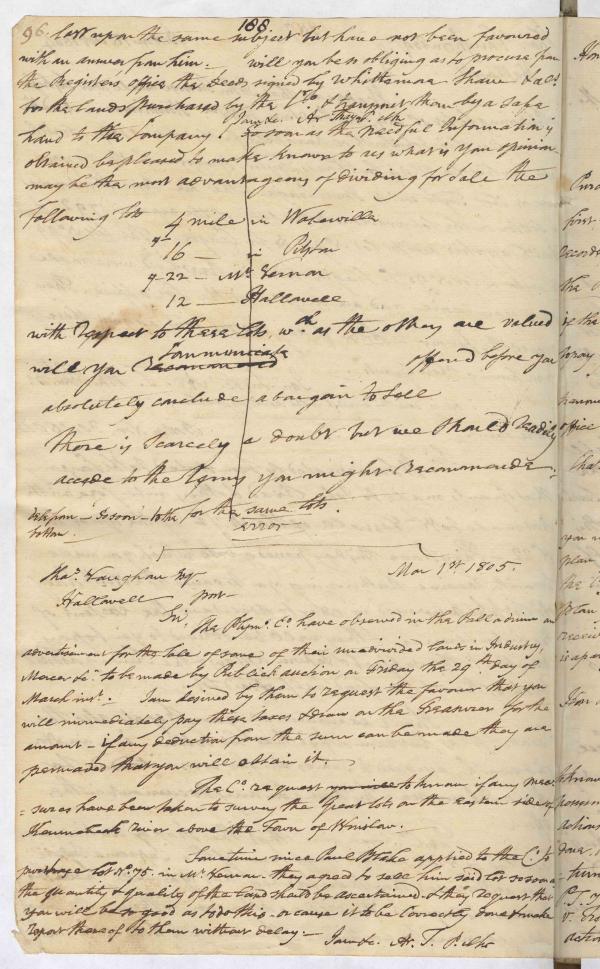 188
96. last upon the same subject but have not been favoured
with an answer from him. Will you be so obliging as to procure from
the Registers office the deeds signed by Whittemore Shaw &
for the lands purchased by the Co. & transmit them by a safe
hand to the Company
I am &c. Ar. Thos. Pike
So soon as the needful Information is
obtained be pleased to make known to us what in your opinion
may be the most advantageous of dividing for sale the
following lots
4 mile in Waterville
16 — in Pitston
22 — Mt. Vernon
12 — Hallowell
with respect to these lots wch. as the others are valued
will you recommend communicate offered before you
absolutely conclude a bargain to sell
there is scarcely a doubt but we should readily
accede to the terms you might recommend.
for the same lots.
error
Mar 1st 1805.
Chas. Vaughan Esq.
Hallowell post
Sir,
The Plym. Co. have observed in the Palladium an
advertisement for the sale of some of their undivided lands in Industry,
Mercer &c. to be made by Publick auction on Friday the 29th. day of
March inst. I am desired by them to request the favour that you
will immediately pay these taxes & draw on the Treasurer for the
amount – if any deduction from the sum can be made they are
persuaded that you will obtain it.
The Co. request you will to know if any mea-
=sures have been taken to survey the Great lots on the Eastern side of
Kennebeck River above the Town of Winslow.
Sometime since Paul Blake applied to the Co. to
purchase Lot No. 75. in Mt. Vernon – they agreed to sell him said lot so soon as
the quantity & quality of the land should be ascertained & they request that
you will be so good as to do this – or cause it to be correctly done & make
report thereof to them without delay. — I am &c. Ar. T. Pike